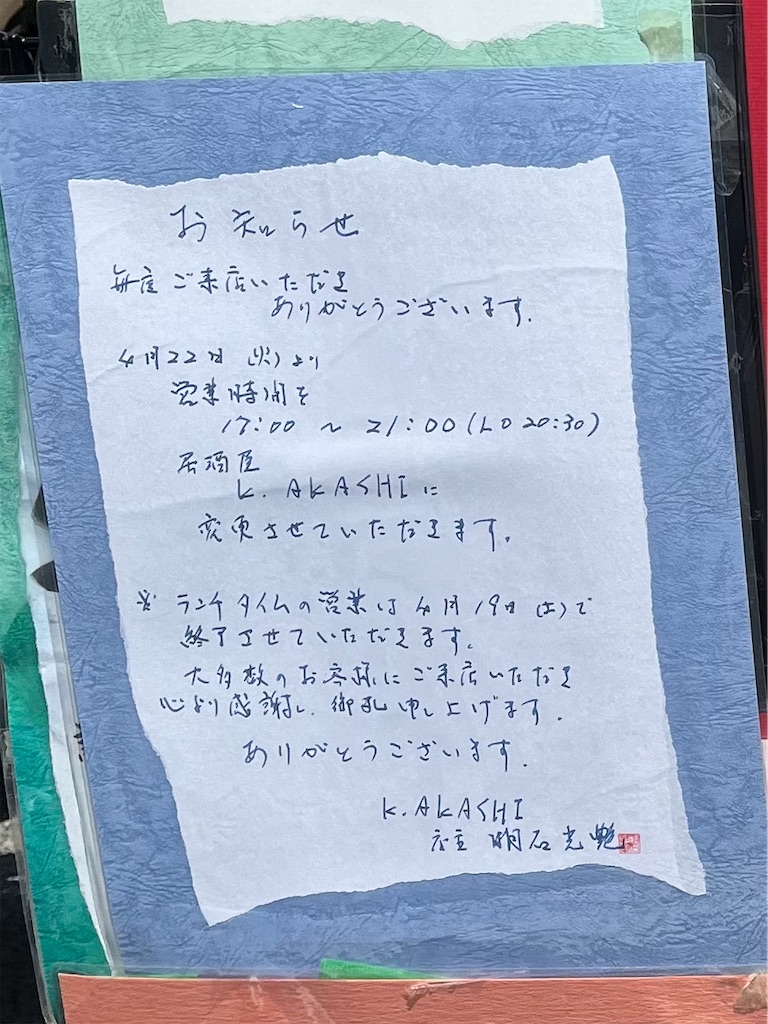 お知らせ
毎度ご来店いただき
ありがとうございます。
4月22日(火)より
営業時間を
17:00 〜 21:00(LO 20:30)
居酒屋
K. AKASHIに
変更させていただきます。
※ ランチタイムの営業は4月19日(土)で
終了させていただきます。
大多数のお客様にご来店いただき
心より感謝し、御礼申し上げます。
ありがとうございます。
K. AKASHI
店主 明石光艶